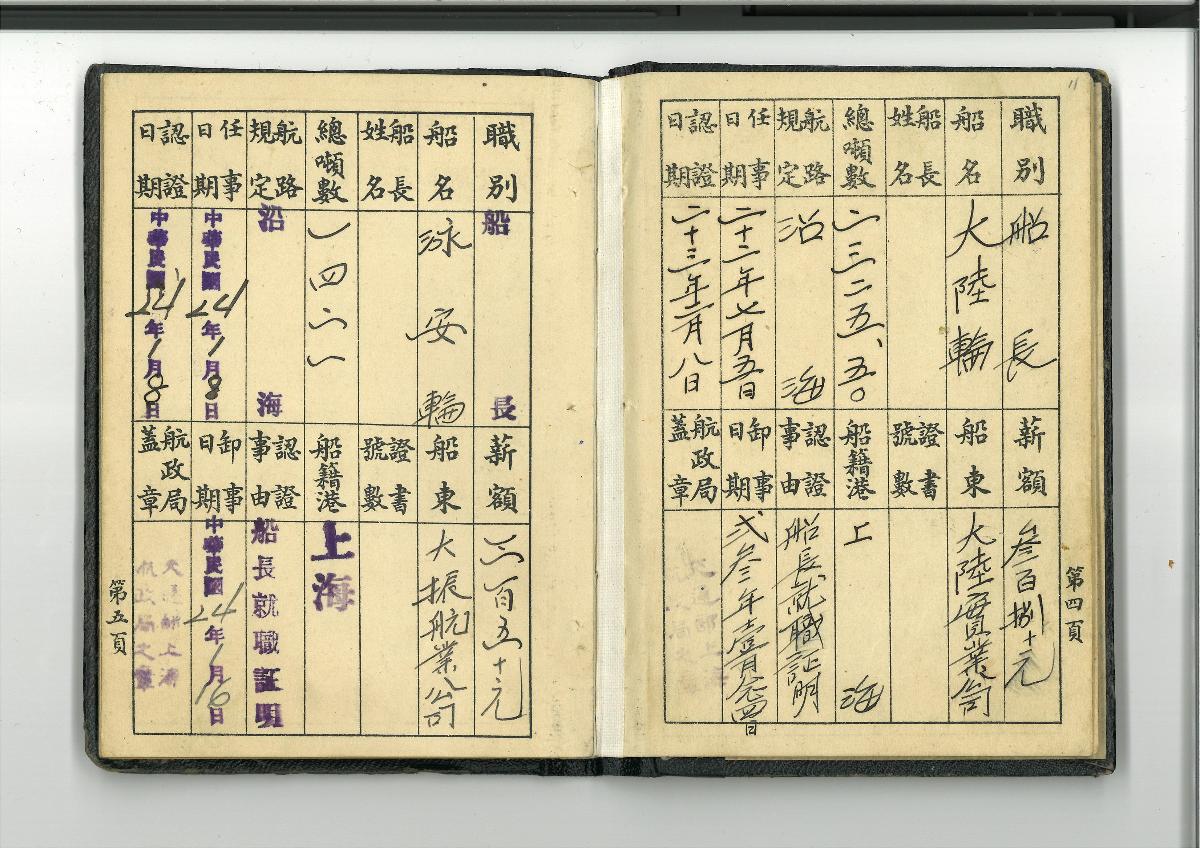 職別
船長
薪額
叁百捌十元
船名
大陸輪
船東
大陸實業公司
船長姓名
證書號數
總噸數
二三二五、五〇
船籍港
上海
航路規定
沿海
認證事由
船長就職証明
任事日期
二十二年七月五日
卸事日期
弍叁年壹月念四日
認證日期
二十三年二月八日
航政局蓋章
第四頁
11
職別
船長
薪額
二百五十元
船名
泳安輪
船東
大振航業公司
船長姓名
證書號數
總噸數
一四六一
船籍港
上海
航路規定
沿海
認證事由
船長就職証明
任事日期
中華民國24年1月8日
卸事日期
中華民國24年1月16日
認證日期
中華民國24年1月8日
航政局蓋章
第五頁